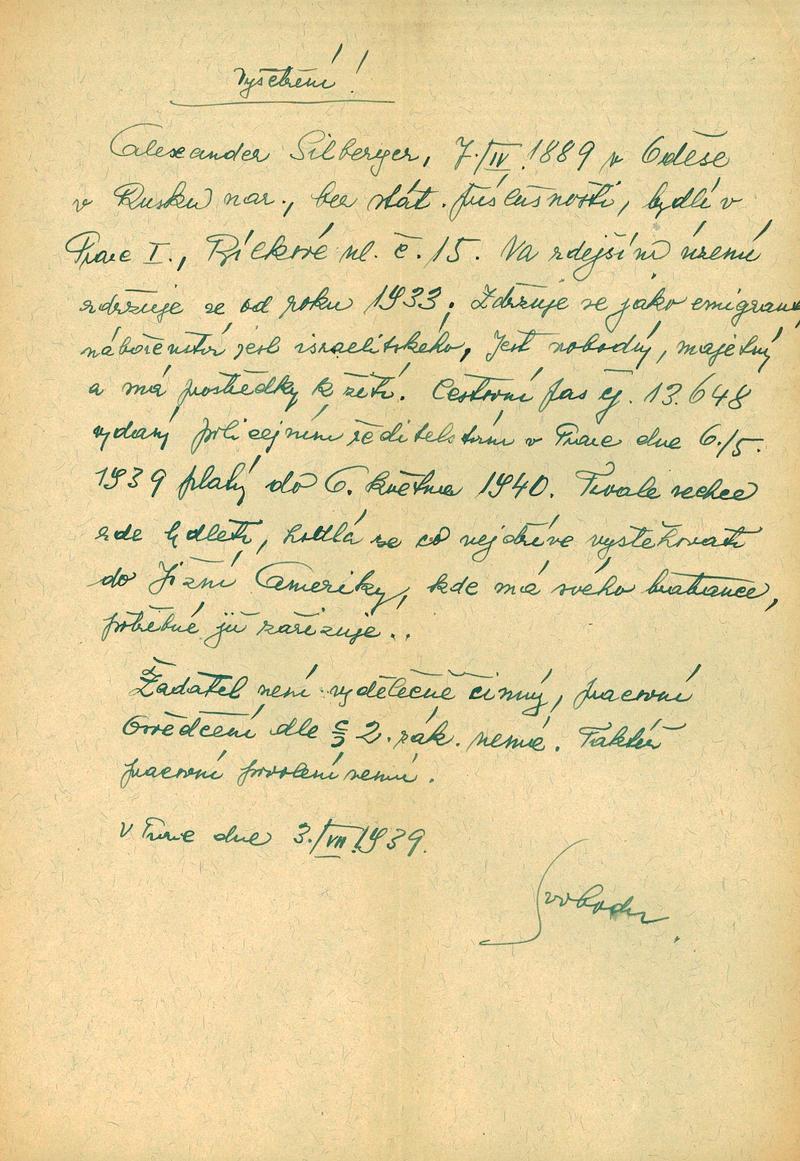 Vyšetření!
Alexander Silberger, 7./IV. 1889 v Oděse
v Rusku nar., bez stát. příslušnosti, bydlí v
Praze I., Bílkové ul. č. 15. Na zdejším území
zdržuje se od roku 1933. Zdržuje se jako emigrant,
náboženství jest israelitského, jest svobodný, majetný
a má prostředky k žití. Cestovní pas čj. 13.648
vydaný policejním ředitelstvím v Praze dne 6./5.
1939 platný do 6. května 1940. Trvale nechce
zde bydleti, hodlá se co nejdříve vystěhovati
do Jižní Ameriky, kde má svého bratrance,
potřebné již zařizuje..
Žadatel není výdělečně činný, pracovní
Osvědčení dle § 2. zák. nemá. Taktéž
pracovní povolení nemá.
V Praze dne 3./VII. 1939.
Svoboda